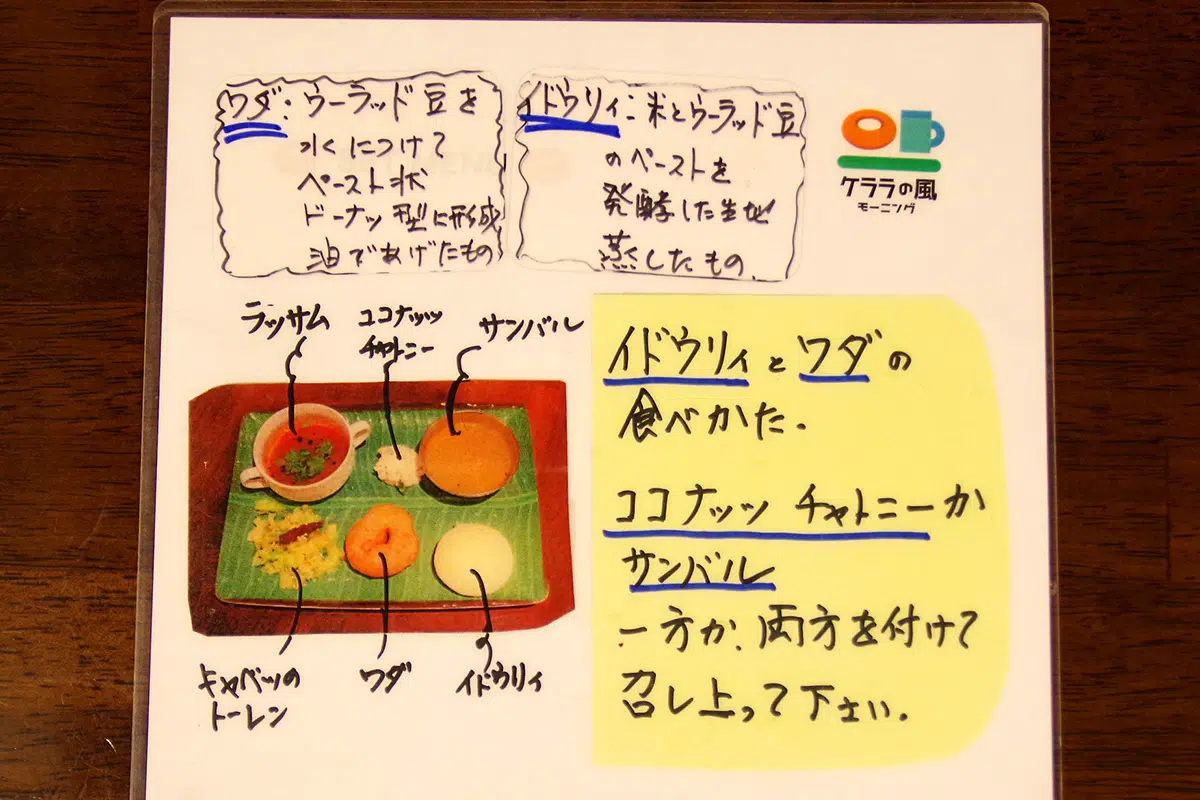 ワダ:ウーラッド豆を
水につけて
ペースト状
ドーナッツ型に形成
油であげたもの
イドゥリィ:米とウーラッド豆
のペーストを
発酵した生地
蒸したもの
ケララの風
モーニング
ラッサム
ココナッツ
チャトニー
サンバル
キャベツの
トーレン
ワダ
イドゥリィ
イドゥリィとワダの
食べかた.
ココナッツ チャトニーか
サンバル
一方か、両方を付けて
召し上って下さい.